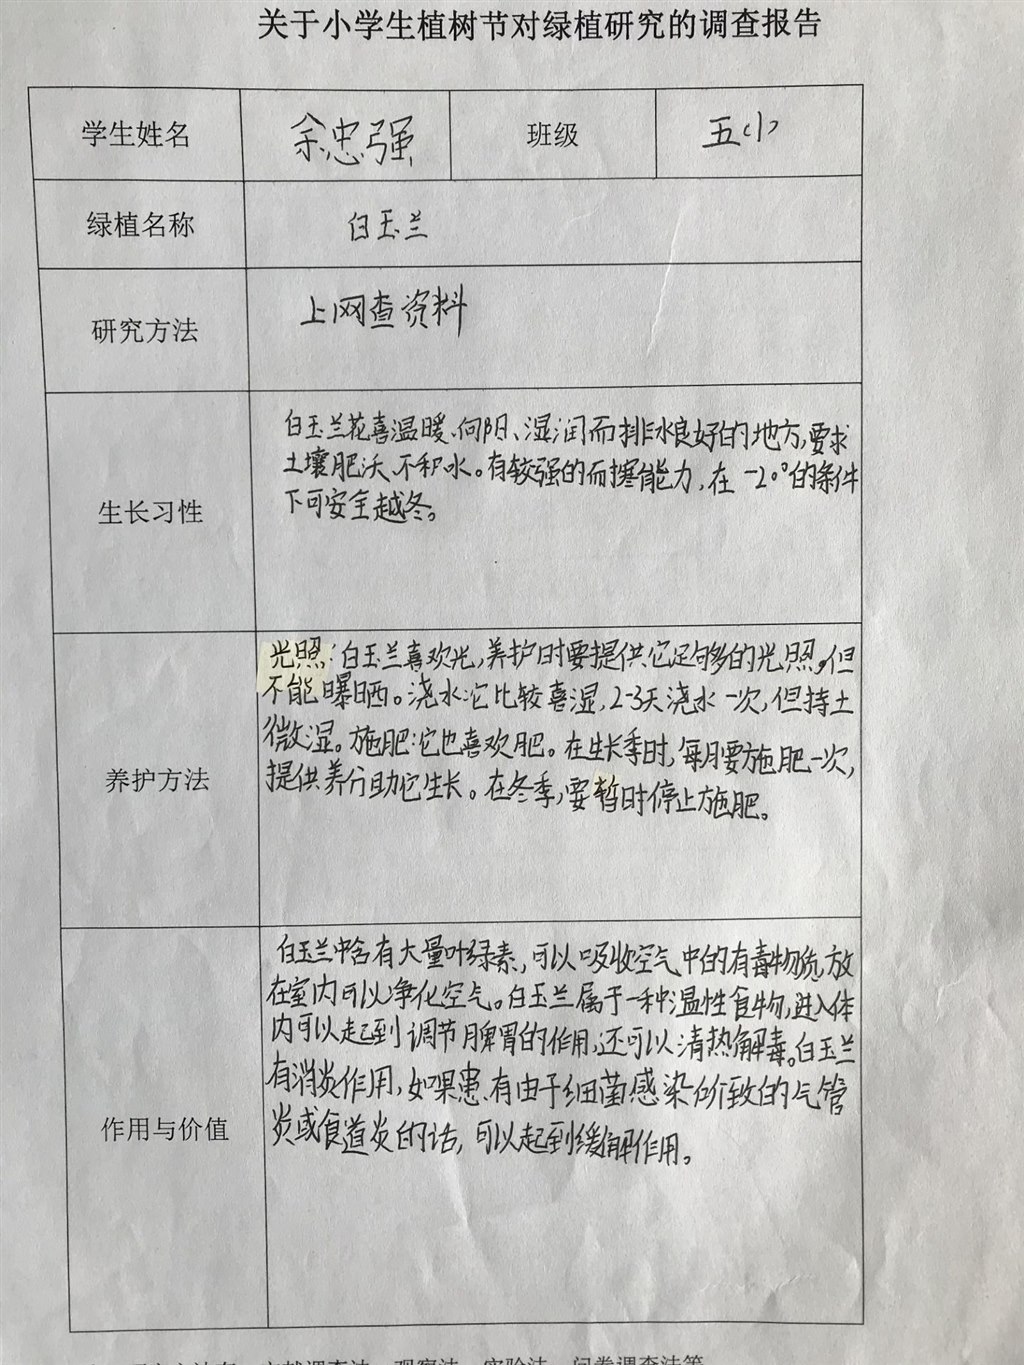 关于小学生植树节对绿植研究的调查报告
学生姓名 余忠强 班级 五(小)
绿植名称 白玉兰
研究方法 上网查资料
生长习性
白玉兰花喜温暖、向阳、湿润而排水良好的地方,要求
土壤肥沃、不积水。有较强的而寒能力,在-20°的条件
下可安全越冬。
养护方法
光照:白玉兰喜欢光,养护时要提供它足够多的光照。但
不能曝晒。浇水:它比较喜湿,2-3天浇水一次,但持土
微湿。施肥:它也喜欢肥。在生长季时,每月要施肥一次,
提供养分助它生长。在冬季,要暂时停止施肥。
作用与价值
白玉兰中含有大量叶绿素,可以吸收空气中的有毒物质,放
在室内可以净化空气。白玉兰属于一种温性食物,进入体
内可以起到调节脾胃的作用,还可以清热解毒。白玉兰
有消炎作用,如果患有由于细菌感染所致的气管
炎或食道炎的话,可以起到缓解作用。
文献调查法、观察法、实验法、问卷调查法等